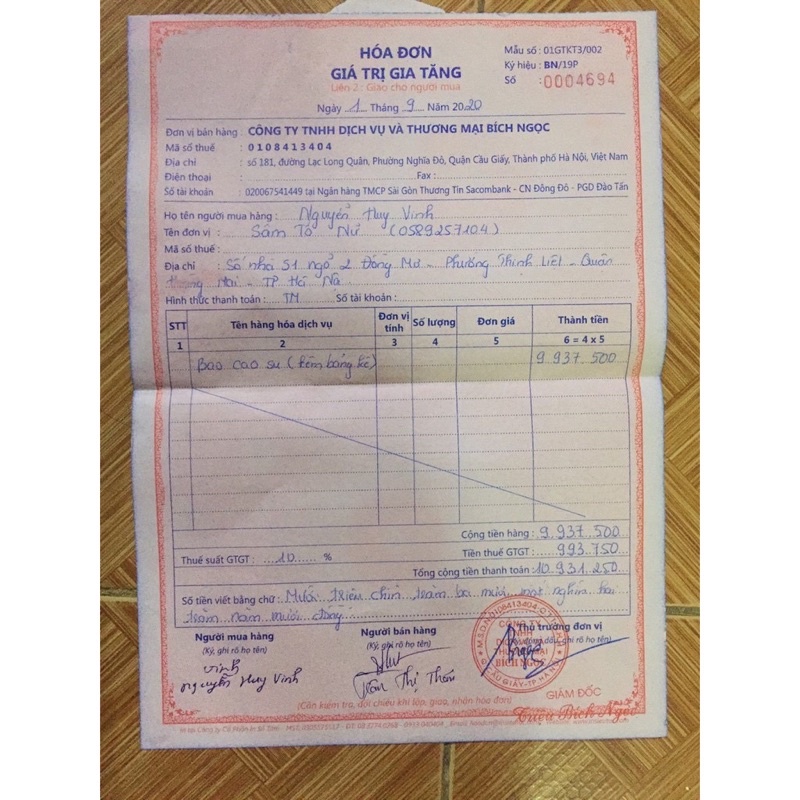 HÓA ĐƠN
GIÁ TRỊ GIA TĂNG
Liên 2: Giao cho người mua
Mẫu số : 01GTKT3/002
Ký hiệu : BN/19P
Số : 0004694
Ngày 1 Tháng 9 Năm 2020
Đơn vị bán hàng : CÔNG TY TNHH DỊCH VỤ VÀ THƯƠNG MẠI BÍCH NGỌC
Mã số thuế : 0108413404
Địa chỉ : số 181, đường Lạc Long Quân, Phường Nghĩa Đô, Quận Cầu Giấy, Thành phố Hà Nội, Việt Nam
Điện thoại : Fax :
Số tài khoản : 020067541449 tại Ngân hàng TMCP Sài Gòn Thương Tín Sacombank - CN Đông Đô - PGD Đào Tấn
Họ tên người mua hàng : Nguyễn Huy Vinh
Tên đơn vị : Sâm Tố Nữ (0589257104)
Mã số thuế :
Địa chỉ : Số nhà 51 ngõ 2 - Phường Thịnh Liệt - Quận
Mai - TP Hà Nội
Hình thức thanh toán : TM Số tài khoản :
STT Tên hàng hóa dịch vụ Đơn vị tính Số lượng Đơn giá Thành tiền
1 2 3 4 5 6 = 4 x 5
Bao cao su (kèm bảng kê) 9 937 500
Cộng tiền hàng : 9 937 500
Thuế suất GTGT : 10 % Tiền thuế GTGT : 993.750
Tổng cộng tiền thanh toán : 10.931.250
Số tiền viết bằng chữ : Mười triệu chín trăm ba mươi mốt nghìn hai
trăm năm mươi đồng
Người mua hàng Người bán hàng Thủ trưởng đơn vị
(Ký, ghi rõ họ tên) (Ký, ghi rõ họ tên) đóng dấu, ghi rõ họ tên)
Vinh
Nguyễn Huy Vinh Trần Thị
BÍCH NGỌC
Q. CẦU GIẤY - TP. HÀ NỘI
GIÁM ĐỐC
Triệu Bích Ngọc
(Cần kiểm tra, đối chiếu khi lập, giao, nhận hóa đơn)